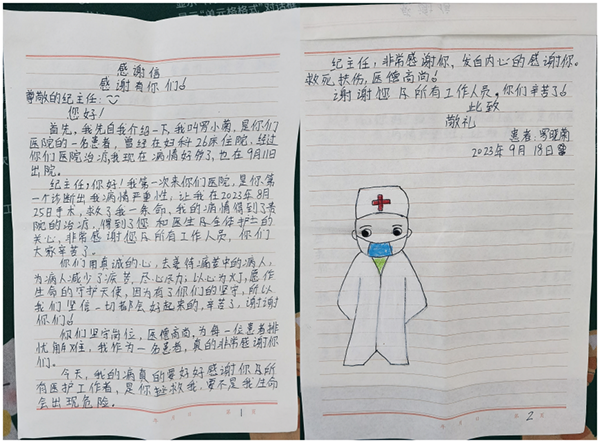 感谢信
感谢有你们！
尊敬的纪主任：
您好！
首先，我先自我介绍一下，我叫罗小菊，是你们
医院的一名患者，曾经在妇科26床住院，经过
你们医院治疗，我现在病情好多了，也在9月11日
出院。
纪主任，你好！我第一次来你们医院，是你第
一个诊断出我病情严重性，让我在2023年8月
25日手术，救了我一条命，我的病情得到了贵
院的治疗，得到了您和医生及全体护士的
关心，非常感谢您及所有工作人员，你们
大家辛苦了。
你们用真诚的心，去善待痛苦中的病人，
为病人减少了病苦，尽心尽力；以心为灯，愿作
生命的守护天使，因为有了你们的坚守，所以
我们坚信一切都会好起来的，辛苦了，谢谢
你们！
你们坚守岗位，医德高尚，为每一位患者排
忧解难，我作为一名患者，真的非常感谢你
们。
今天，我的病真的要好好感谢你及所
有医护工作者，是你拯救我，要不是我生命
会出现危险。
第1页
纪主任，非常感谢你、发自内心的感谢你。
救死扶伤，医德高尚！
谢谢您及所有工作人员。你们辛苦了！
此致
敬礼
患者：罗晓菊
2023年9月18日
2